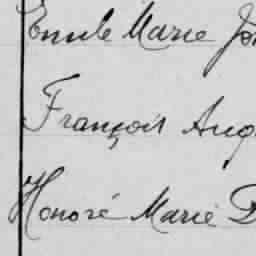 Emile Marie Jo
François Aug
Honoré Marie D